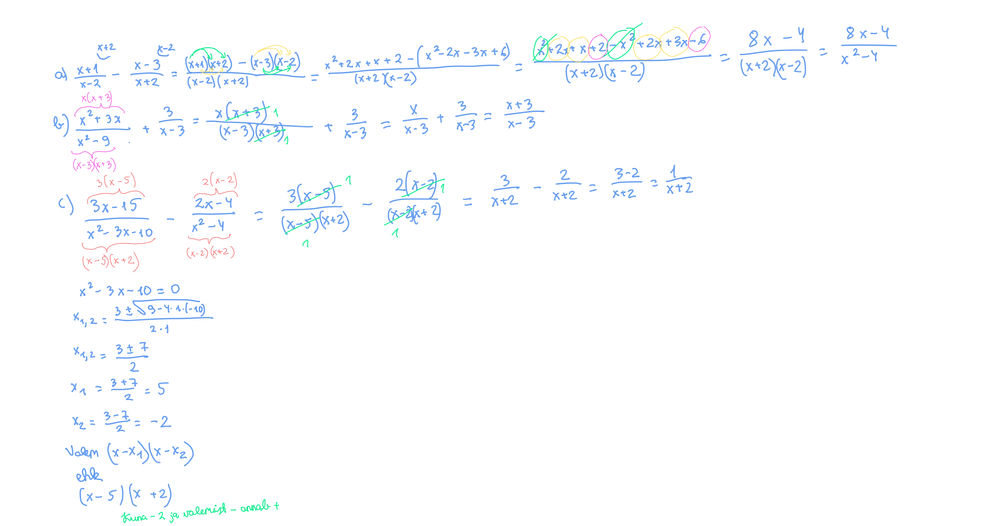 x+2 x-2
a) (x+1)/(x-2) - (x-3)/(x+2) = ((x+1)(x+2) - (x-3)(x-2))/((x-2)(x+2)) = (x²+2x+x+2-(x²-2x-3x+6))/((x+2)(x-2)) = (x²+2x+x+2-x²+2x+3x-6)/((x+2)(x-2)) = (8x-4)/((x+2)(x-2)) = (8x-4)/(x²-4)
x(x+3)
b) (x²+3x)/(x²-9) + 3/(x-3) = (x(x+3) 1)/((x-3)(x+3) 1) + 3/(x-3) = x/(x-3) + 3/(x-3) = (x+3)/(x-3)
(x-3)(x+3)
3(x-5) 2(x-2)
c) (3x-15)/(x²-3x-10) - (2x-4)/(x²-4) = (3(x-5) 1)/((x-5)(x+2) 1) - (2(x-2) 1)/((x-2)(x+2) 1) = 3/(x+2) - 2/(x+2) = (3-2)/(x+2) = 1/(x+2)
(x-5)(x+2) (x-2)(x+2)
x²-3x-10=0
x₁,₂ = (3±√(9-4·1·(-10)))/(2·1)
x₁,₂ = (3±7)/2
x₁ = (3+7)/2 = 5
x₂ = (3-7)/2 = -2
Valem (x-x₁)(x-x₂)
ehk
(x-5)(x+2)
kuna -2 ja valemist - annab +